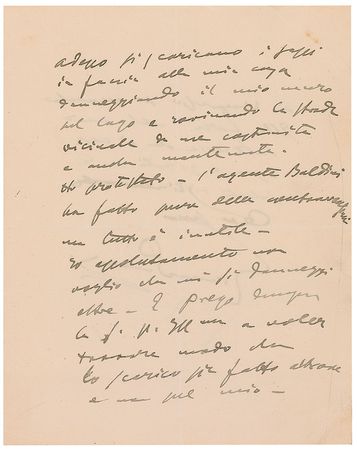 adesso si scaricano i sassi
in faccia alla mia casa
danneggiando il mio muro
sul lago e rovinando la strada
vicinale da me costruita
e anche mantenuta.
Ho protestato - l'agente Baldini
ha fatto pure delle contravvenzioni
ma tutto è inutile -
Io assolutamente non
voglio che mi si danneggi
oltre - E prego dunque
la S. V. Ill ma a voler
trovare modo che
lo scarico sia fatto altrove
e non sul mio -